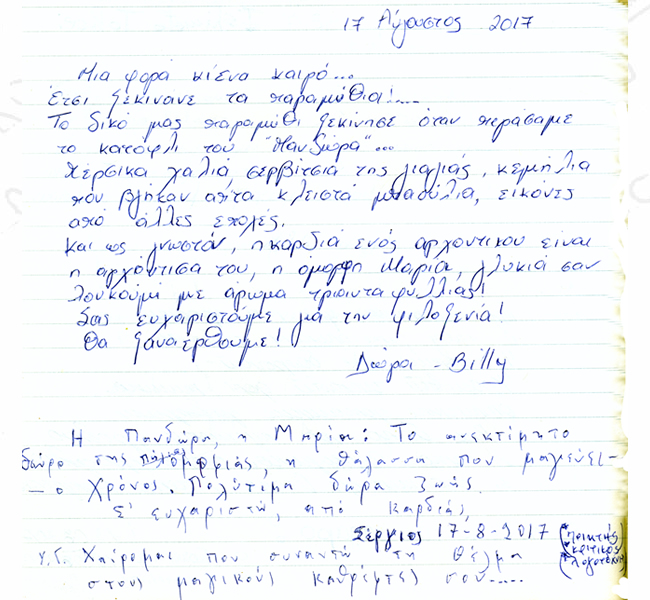 17 Αύγουστος 2017
Μια φορά κι ένα καιρό...
Έτσι ξεκινάνε τα παραμύθια!....
Το δικό μας παραμύθι ξεκίνησε όταν περάσαμε
το κατώφλι του "Πανδώρα"...
Πέρσικα χαλιά, σερβίτσια της γιαγιάς, κεμήλια
που βγήκαν απ'τα κλειστά μπαούλια, εικόνες
από άλλες εποχές.
Και ως γνωστόν, η καρδιά ενός αρχοντικού είναι
η αρχόντισα του, η όμορφη Μαρία, γλυκιά σαν
λουκούμι με άρωμα τριανταφυλλιάς!
Σας ευχαριστούμε για την φιλοξενία!
Θα ξαναερθουμε!
Δώρα - Billy
Η Πανδώρα, η Μαρία: Το ανεκτίμητο
δώρο της ομορφιάς, η θάλασσα που μαγεύει -
- ο χρόνος. Πολύτιμα δώρα ζωής.
Σ' ευχαριστώ, από καρδιάς,
Σέργιος 17-8-2017 (ποιητής
κριτικός
λογοτεχνίας)
Υ.Γ. Χαίρομαι που συναντώ τη Θέλμα
στους μαγικούς καθρέφτες σου.....